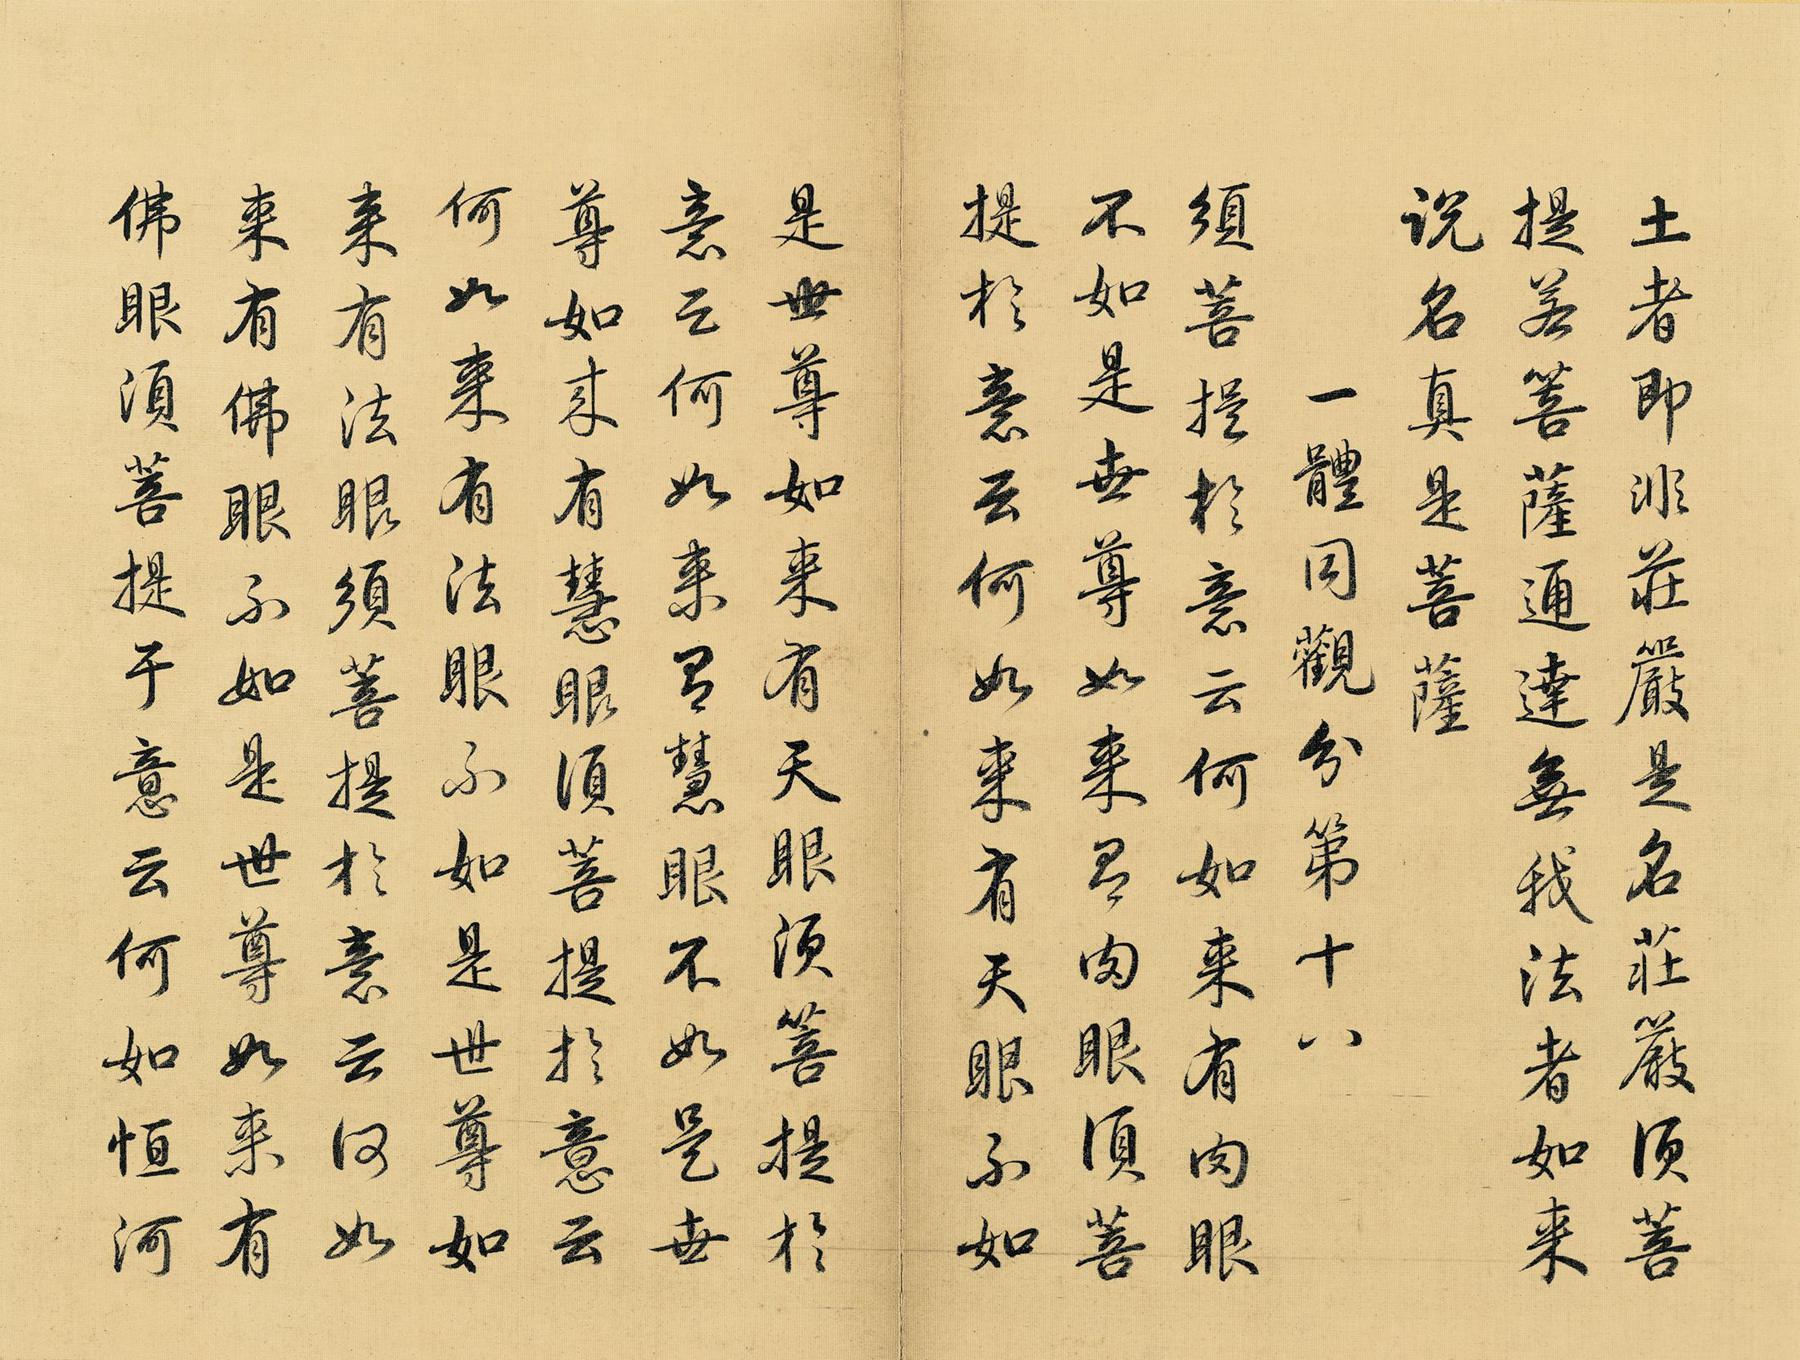 土者即非莊嚴是名莊嚴須菩
提若菩薩通達無我法者如来
说名真是菩薩
一體同觀分第十八
須菩提於意云何如来有肉眼
不如是世尊如来有肉眼須菩
提於意云何如来有天眼不如
是世尊如来有天眼須菩提於
意云何如来有慧眼不如是世
尊如来有慧眼須菩提於意云
何如来有法眼不如是世尊如
来有法眼須菩提於意云何如
来有佛眼不如是世尊如来有
佛眼須菩提于意云何如恒河